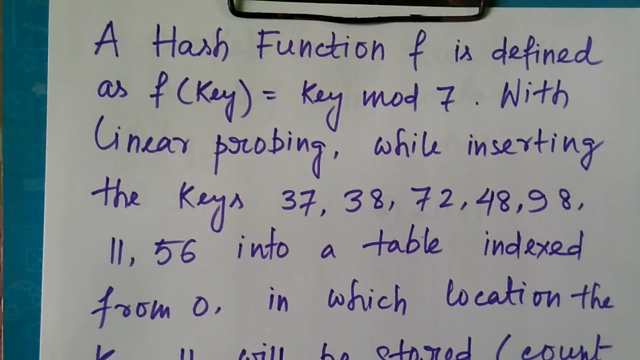 A Hash Function f is defined
as f(Key) = Key mod 7. With
linear probing, while inserting
the Keys 37, 38, 72, 48, 98,
11, 56 into a table indexed
from 0, in which location the
11 will be stored (count